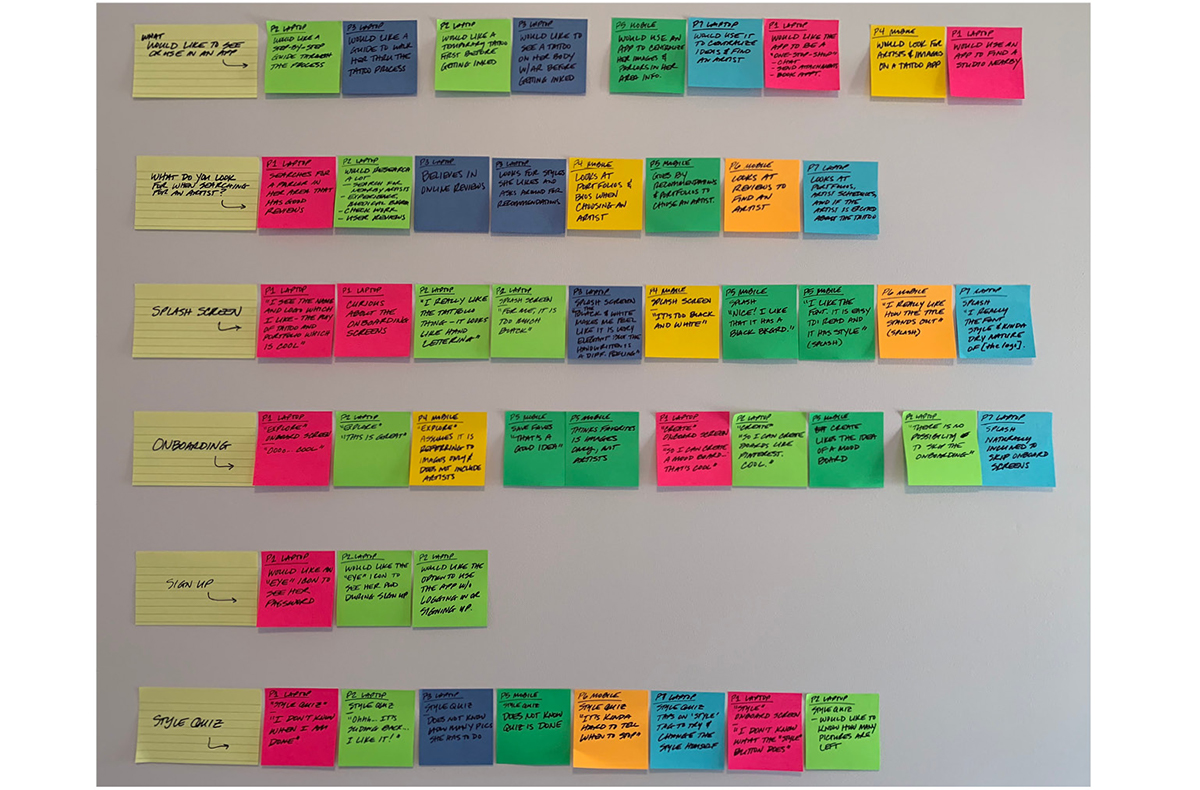 WHAT
WOULD LIKE TO SEE
OR USE IN AN APP
P2 LAPTOP
WOULD LIKE A
STEP-BY-STEP
GUIDE THROUGH
THE PROCESS
P3 LAPTOP
WOULD LIKE A
GUIDE TO WALK
HER THRU THE
TATTOO PROCESS
P2 LAPTOP
WOULD LIKE A
TEMPORARY TATTOO
FIRST BEFORE
GETTING INKED
P3 LAPTOP
WOULD LIKE TO
SEE A TATTOO
ON HER BODY
W/AR BEFORE
GETTING INKED
P5 MOBILE
WOULD USE AN
APP TO CENTRALIZE
HER IMAGES &
PARLORS IN HER
AREA INFO.
P7 LAPTOP
WOULD USE IT
TO CENTRALIZE
IDEAS & FIND
AN ARTIST
P1 LAPTOP
WOULD LIKE THE
APP TO BE A
"ONE-STOP-SHOP"
- CHAT
- SEND ATTACHMENTS
- BOOK APPT.
P4 MOBILE
WOULD LOOK FOR
ARTISTS &
ON A TATTOO APP
P1 LAPTOP
WOULD USE
AN APP TO FIND A
STUDIO NEARBY
WHAT DO YOU LOOK
FOR WHEN SEARCHING
FOR AN ARTIST?
P1 LAPTOP
SEARCHES FOR
A PARLOR IN
HER AREA THAT
HAS GOOD
REVIEWS
P2 LAPTOP
WOULD RESEARCH
A LOT
- SEARCH FOR
NEARBY ARTISTS
- EXPERIENCE
- CHECK WORK
- USER REVIEWS
P3 LAPTOP
BELIEVES IN
ONLINE REVIEWS
P3 LAPTOP
LOOKS FOR STYLES
SHE LIKES AND
ASKS AROUND FOR
RECOMMENDATIONS
P4 MOBILE
LOOKS AT
PORTFOLIOS &
BIOS WHEN
CHOOSING AN
ARTIST
P5 MOBILE
GOES BY
RECOMMENDATIONS
& PORTFOLIO TO
CHOOSE AN ARTIST.
P6 MOBILE
LOOKS AT
REVIEWS TO
FIND AN
ARTIST
P7 LAPTOP
LOOKS AT
PORTFOLIOS,
ARTIST SCHEDULES,
AND IF THE
ARTIST IS EXCITED
ABOUT THE TATTOO
SPLASH SCREEN
P1 LAPTOP
"I SEE THE NAME
AND LOGO WHICH
I LIKE - THE
OF TATTOO AND
PORTFOLIO WHICH
IS COOL"
P1 LAPTOP
CURIOUS
ABOUT THE
ONBOARDING
SCREENS
P2 LAPTOP
"I REALLY LIKE
THE TATTOLIO
THING - IT LOOKS
LIKE HAND
LETTERING"
P2 LAPTOP
SPLASH SCREEN
"FOR ME, IT IS
TOO MUCH
BLACK."
P3 LAPTOP
SPLASH SCREEN
"BLACK & WHITE
MAKES ME FEEL
LIKE IT IS VERY
ELEGANT BUT THE
HANDWRITTEN IS
A DIFF. FEELING"
P4 MOBILE
SPLASH SCREEN
"IT'S TOO BLACK
AND WHITE"
P5 MOBILE
SPLASH
"NICE! I LIKE
THAT IT HAS A
BLACK BKGRD."
P5 MOBILE
"I LIKE THE
FONT. IT IS EASY
TO READ AND
IT HAS STYLE"
(SPLASH)
P6 MOBILE
"I REALLY LIKE
HOW THE TITLE
STANDS OUT"
(SPLASH)
P7 LAPTOP
SPLASH
"I REALLY
THE FONT
STYLE & KINDA
DRY NATURE
OF [the logo].
ONBOARDING
P1 LAPTOP
"EXPLORE"
ONBOARD SCREEN
"OOO... COOL"
P2 LAPTOP
"EXPLORE"
"THIS IS GREAT"
P4 MOBILE
"EXPLORE"
ASSUMES IT IS
REFERRING TO
IMAGES ONLY &
DOES NOT INCLUDE
ARTISTS
P5 MOBILE
SAVE FAVES
"THAT'S A
GOOD IDEA"
P5 MOBILE
THINKS FAVORITES
IS IMAGES
ONLY, NOT
ARTISTS
P1 LAPTOP
"CREATE"
ONBOARD SCREEN
"SO I CAN CREATE
A MOOD BOARD...
THAT'S COOL"
P2 LAPTOP
"CREATE"
"SO I CAN CREATE
BOARDS LIKE
PINTEREST.
COOL."
P5 MOBILE
CREATE
LIKES THE IDEA
OF A MOOD
BOARD
P2 LAPTOP
"THERE IS NO
POSSIBILITY
TO SKIP THE
ONBOARDING."
P7 LAPTOP
SPLASH
NATURALLY
INCLINED TO
SKIP ONBOARD
SCREENS
SIGN UP
P1 LAPTOP
WOULD LIKE AN
"EYE" ICON TO
SEE HER
PASSWORD
P2 LAPTOP
WOULD LIKE THE
"EYE" ICON TO
SEE HER PWD
DURING SIGN UP
P2 LAPTOP
WOULD LIKE THE
OPTION TO USE
THE APP W/O
LOGGING IN OR
SIGNING UP.
STYLE QUIZ
P1 LAPTOP
"STYLE QUIZ"
"I DON'T KNOW
WHEN I AM
DONE"
P2 LAPTOP
STYLE QUIZ
"OHH... IT'S
SLIDING BACK...
I LIKE IT!"
P3 LAPTOP
STYLE QUIZ
DOES NOT KNOW
HOW MANY PICS
SHE HAS TO DO
P5 MOBILE
STYLE QUIZ
DOES NOT KNOW
QUIZ IS DONE
P6 MOBILE
STYLE QUIZ
"IT'S KINDA
HARD TO TELL
WHEN TO STOP"
P7 LAPTOP
STYLE QUIZ
TAPS ON 'STYLE'
TAG TO TRY &
CHANGE THE
STYLE HIMSELF
P1 LAPTOP
"STYLE"
ONBOARD SCREEN
"I DON'T KNOW
WHAT THE "STYLE"
BUTTON DOES"
P2 LAPTOP
STYLE QUIZ
- WOULD LIKE TO
KNOW HOW MANY
PICTURES ARE
LEFT